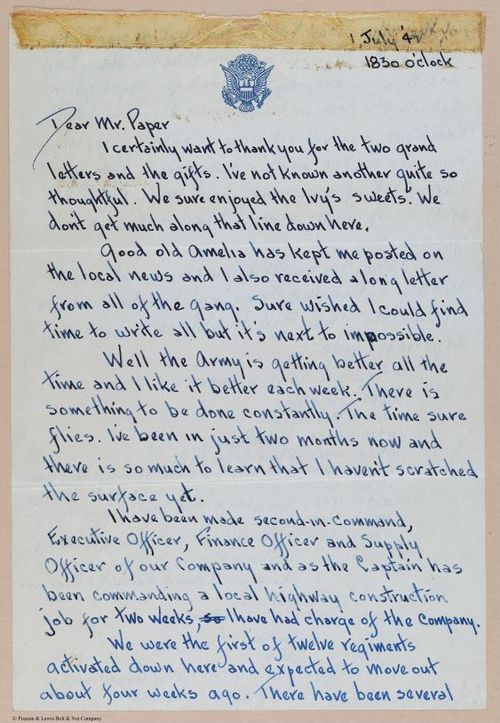 1 July '42
1830 o'clock
Dear Mr. Paper
I certainly want to thank you for the two grand
letters and the gifts. I've not known another quite so
thoughtful. We sure enjoyed the Ivy's sweets. We
don't get much along that line down here.
Good old Amelia has kept me posted on
the local news and I also received a long letter
from all of the gang. Sure wished I could find
time to write all but it's next to impossible.
Well the Army is getting better all the
time and I like it better each week. There is
something to be done constantly. The time sure
flies. I've been in just two months now and
there is so much to learn that I haven't scratched
the surface yet.
I have been made second-in-command,
Executive Officer, Finance Officer and Supply
Officer of our Company and as the Captain has
been commanding a local highway construction
job for two weeks, so I have had charge of the Company.
We were the first of twelve regiments
activated down here and expected to move out
about four weeks ago. There have been several
© Possum & Lewis Bolt & Nut Company